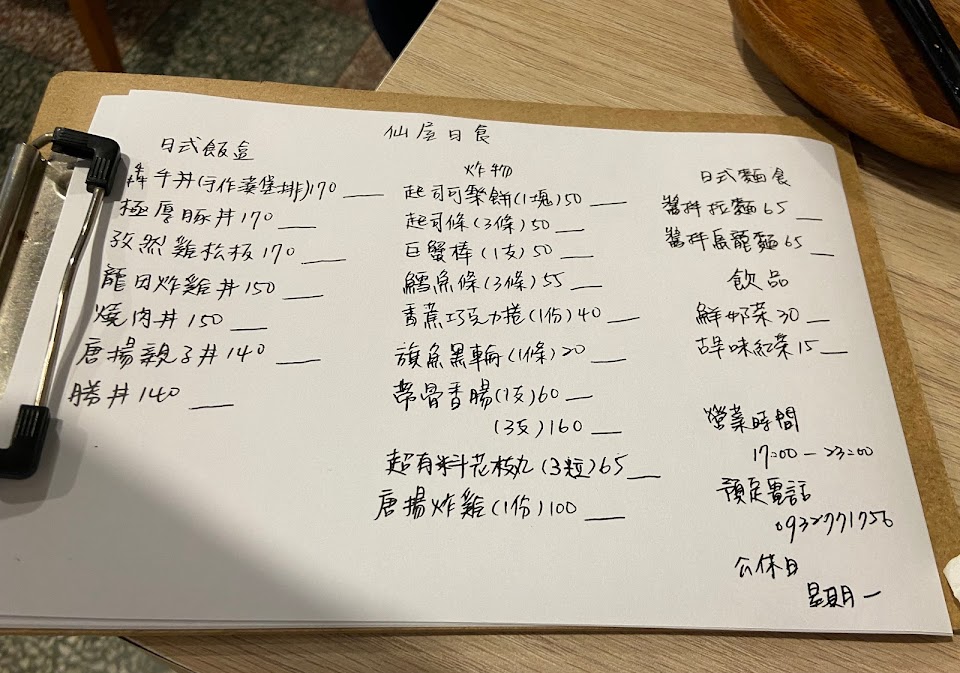 仙屋日食
日式飯盒
犇牛丼(手作漢堡排)170
極厚豚丼 170
孜然雞松板 170
龍田炸雞丼 150
燒肉丼 150
唐揚親子丼 140
勝丼 140
炸物
起司可樂餅(1塊)50
起司條(3條)50
巨蟹棒(1支)50
鱈魚條(3條)55
香蕉巧克力捲(1份)40
旗魚黑輪(1條)20
帶骨香腸(1支)60
(3支)160
超有料花枝丸(3粒)65
唐揚炸雞(1份)100
日式麵食
醬拌拉麵 65
醬拌烏龍麵 65
飲品
鮮奶茶 30
古早味紅茶 15
營業時間
17:00 - 23:00
預定電話
0932771756
公休日
星期一